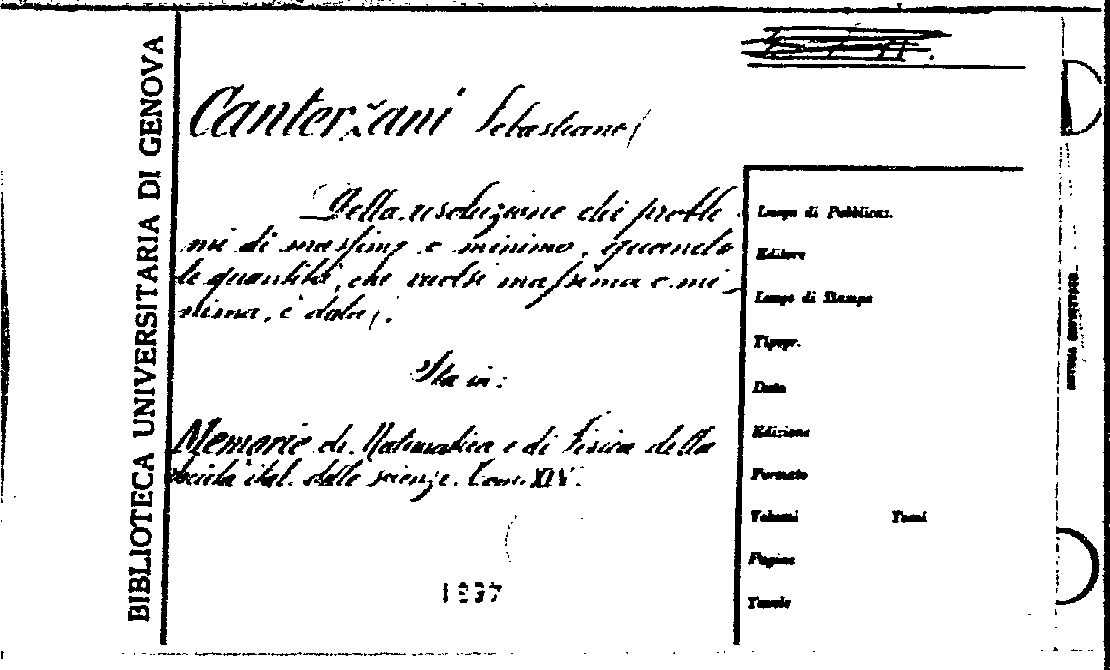 BIBLIOTECA UNIVERSITARIA DI GENOVA
Canterzani Sebastiano
Della risoluzione dei proble
mi di massimo e minimo, quando
la quantità, che vuolsi massima e mi
nima, è data.
Sta in:
Memorie di Matematica e di Fisica della
Società ital. delle scienze. Tomo XIV.
1897
Luogo di Pubblicaz.
Editore
Luogo di Stampa
Tipogr.
Data
Edizione
Formato
Volumi Tomi
Pagine
Tavole